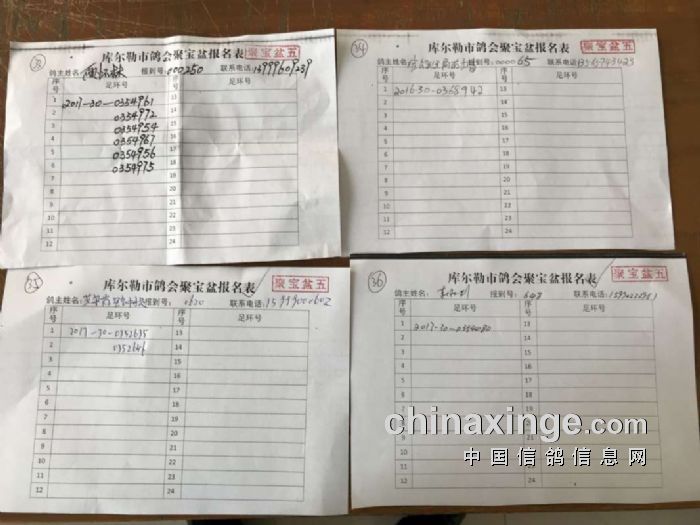 33
库尔勒市鸽会聚宝盆报名表
聚宝盆五
鸽主姓名:
报到号:000250
联系电话:
序号
足环号
序号
足环号
1 2017-30-0354961 13
2 0354972 14
3 0354954 15
4 0354967 16
5 0354956 17
6 0354975 18
7 19
8 20
9 21
10 22
11 23
12 24
34
库尔勒市鸽会聚宝盆报名表
聚宝盆五
鸽主姓名:
报到号:000065
联系电话:
序号
足环号
序号
足环号
1 2016-30-0368942 13
2 14
3 15
4 16
5 17
6 18
7 19
8 20
9 21
10 22
11 23
12 24
35
库尔勒市鸽会聚宝盆报名表
聚宝盆五
鸽主姓名:
报到号:
联系电话:
序号
足环号
序号
足环号
1 2017-30-0352635 13
2 14
3 15
4 16
5 17
6 18
7 19
8 20
9 21
10 22
11 23
12 24
36
库尔勒市鸽会聚宝盆报名表
聚宝盆五
鸽主姓名:
报到号:
联系电话:
序号
足环号
序号
足环号
1 2017-30-0354080 13
2 14
3 15
4 16
5 17
6 18
7 19
8 20
9 21
10 22
11 23
12 24
chinaxinge.com
中国信鸽信息网